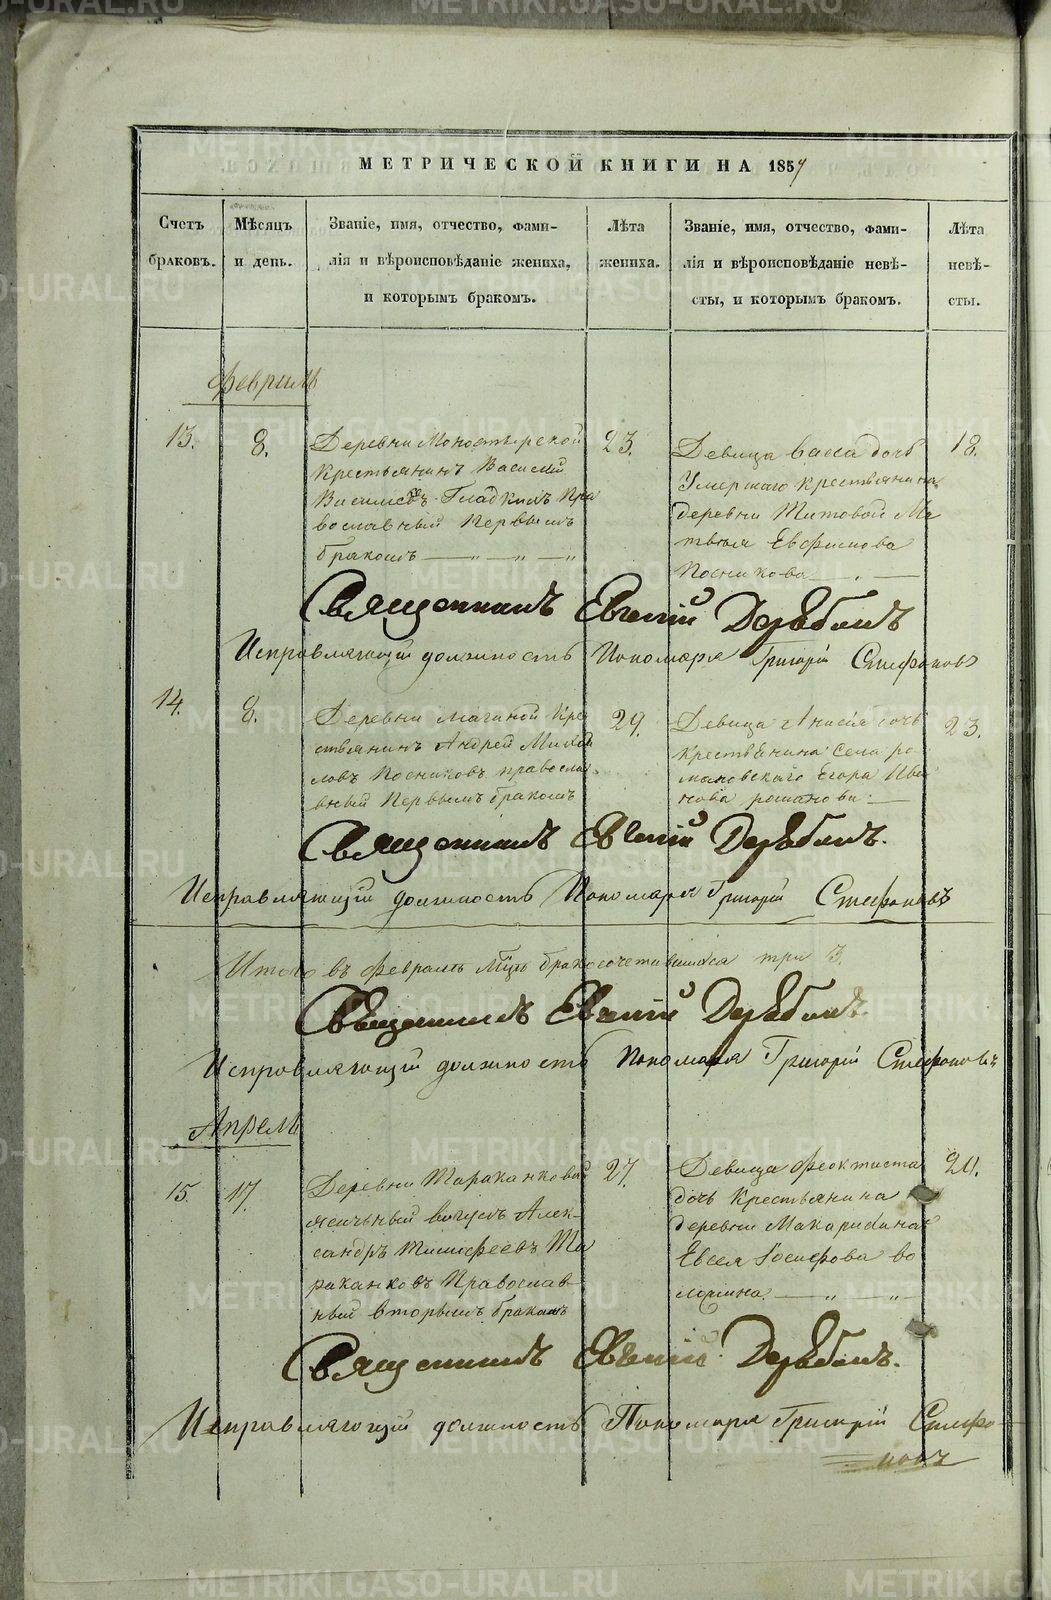 МЕТРИЧЕСКОЙ КНИГИ НА 1857
Счетъ браковъ.
Мѣсяцъ и день.
Званіе, имя, отчество, фами-
лія и вѣроисповѣданіе жениха,
и которымъ бракомъ.
Лѣта жениха.
Званіе, имя, отчество, фами-
лія и вѣроисповѣданіе невѣ-
сты, и которымъ бракомъ.
Лѣта невѣ-
сты.
Февраль
13.
8.
Деревни Моностырской
Крестьянинъ Василий
Василіевъ Гладкихъ Пра
вославный Первымъ
бракомъ
23.
Девица Васса дочь
Умершаго крестьянина
деревни Титовой Ма
твея Евфимова
Посникова
18.
Священникъ Евгений Дерябинъ
Исправляющій должность Пономаря Григорій Стефановъ
14.
8.
Деревни Магиной Кре
стьянинъ Андрей Михай
ловъ Посниковъ правосла
вный Первымъ бракомъ
29.
Девица Анисія дочь
крестьянина Села ро
мановскаго Егора Ива
нова романова
23.
Священникъ Евгеній Дерябинъ.
Исправляющій должность Пономаря Григорій Стефановъ
Итого въ Февралѣ Мцѣ бракосочетавшихся три 3.
Священникъ Евгеній Дерябинъ.
Исправляющій должность Пономаря Григорій Стефановъ
Апрель
15.
17.
Деревни Тараканковой
ясачный вогулъ Алек-
сандръ Тимофеевъ Та
раканковъ Православ-
ный вторымъ бракомъ
27.
Девица Феоктиста
дочь Крестьянина
деревни Макарихиной
Евсея Іосифова во
ложина
20.
Священникъ Евгеній Дерябинъ.
Исправляющій должность Пономаря Григорій Стефа-
новъ